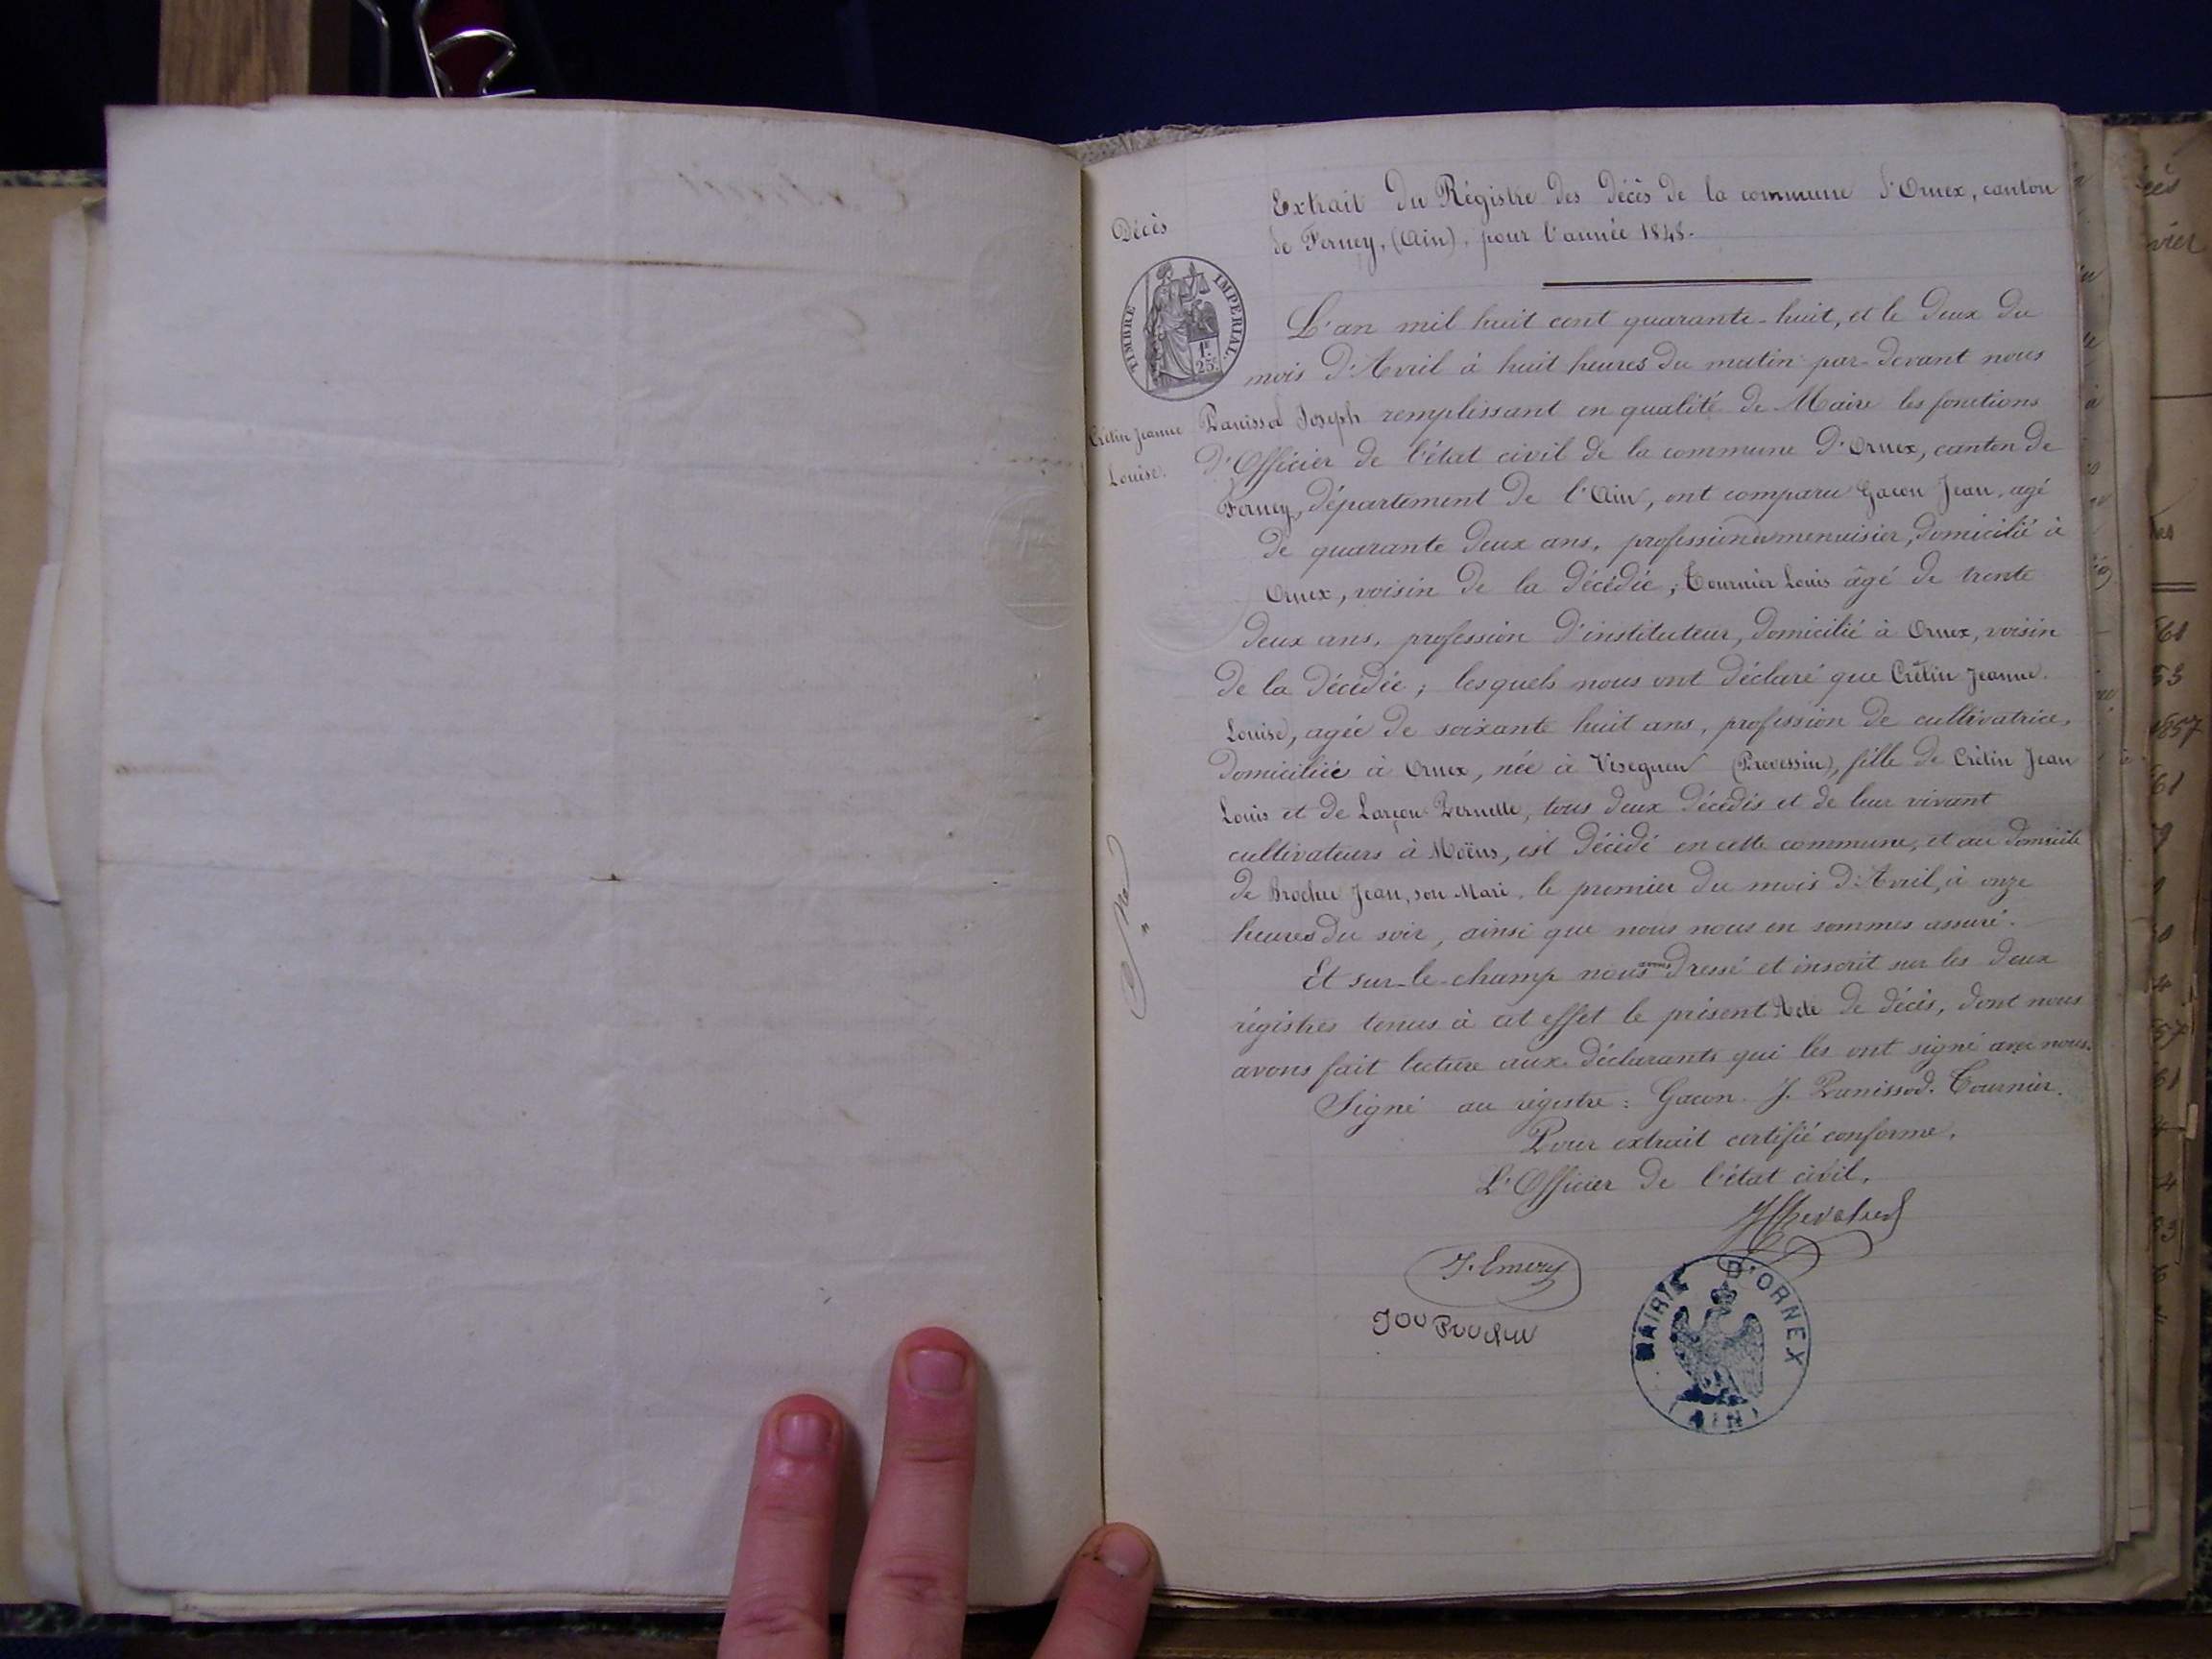 Extrait du Régistre des décès de la commune d'Ornex, canton
de Ferney, (Ain), pour l'année 1848.
Décès
TIMBRE IMPERIAL.
1F
25c
Crétin Jeanne
Louise.
L'an mil huit cent quarante-huit, et le deux du
mois d'Avril à huit heures du matin par-devant nous
Panissod Joseph remplissant en qualité de Maire les fonctions
d'Officier de l'état civil de la commune d'Ornex, canton de
Ferney, département de l'Ain, ont comparu Gacon Jean, agé
de quarante deux ans, profession de menuisier, domicilié à
Ornex, voisin de la décédée; Tournier Louis âgé de trente
deux ans, profession d'instituteur, domicilié à Ornex, voisin
de la décédée; lesquels nous ont déclaré que Crétin Jeanne
Louise, agée de soixante huit ans, profession de cultivatrice,
domiciliée à Ornex, née à (Prevessin), fille de Crétin Jean
Louis et de Larçon Pernette, tous deux décédés et de leur vivant
cultivateurs à Moëns, est décédé en cette commune, et au domicile
de Brochu Jean, son Mari, le premier du mois d'Avril, à onze
heures du soir, ainsi que nous nous en sommes assuré.
Et sur-le-champ nous avons dressé et inscrit sur les deux
régistres tenus à cet effet le présent Acte de décès, dont nous
avons fait lecture aux déclarants qui les ont signé avec nous.
Signé au régistre: Gacon. J. Panissod. Tournier.
Pour extrait certifié conforme,
L'Officier de l'état civil,
J. Emery
MAIRIE D'ORNEX
(AIN)
61
53
1857
61
57
61